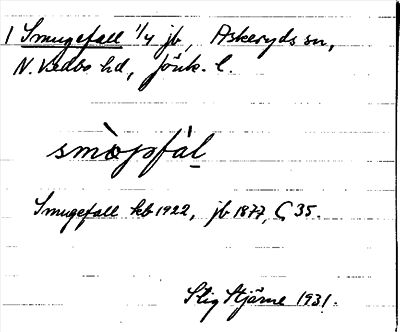 1 Smugefall 1/4 jb, Askeryds sn,
N. Vedbo hd, Jönk. l.
smæ̀pfàl
Smugefall kb 1922, jb 1877, C 35.
Stig Stjärne 1931.